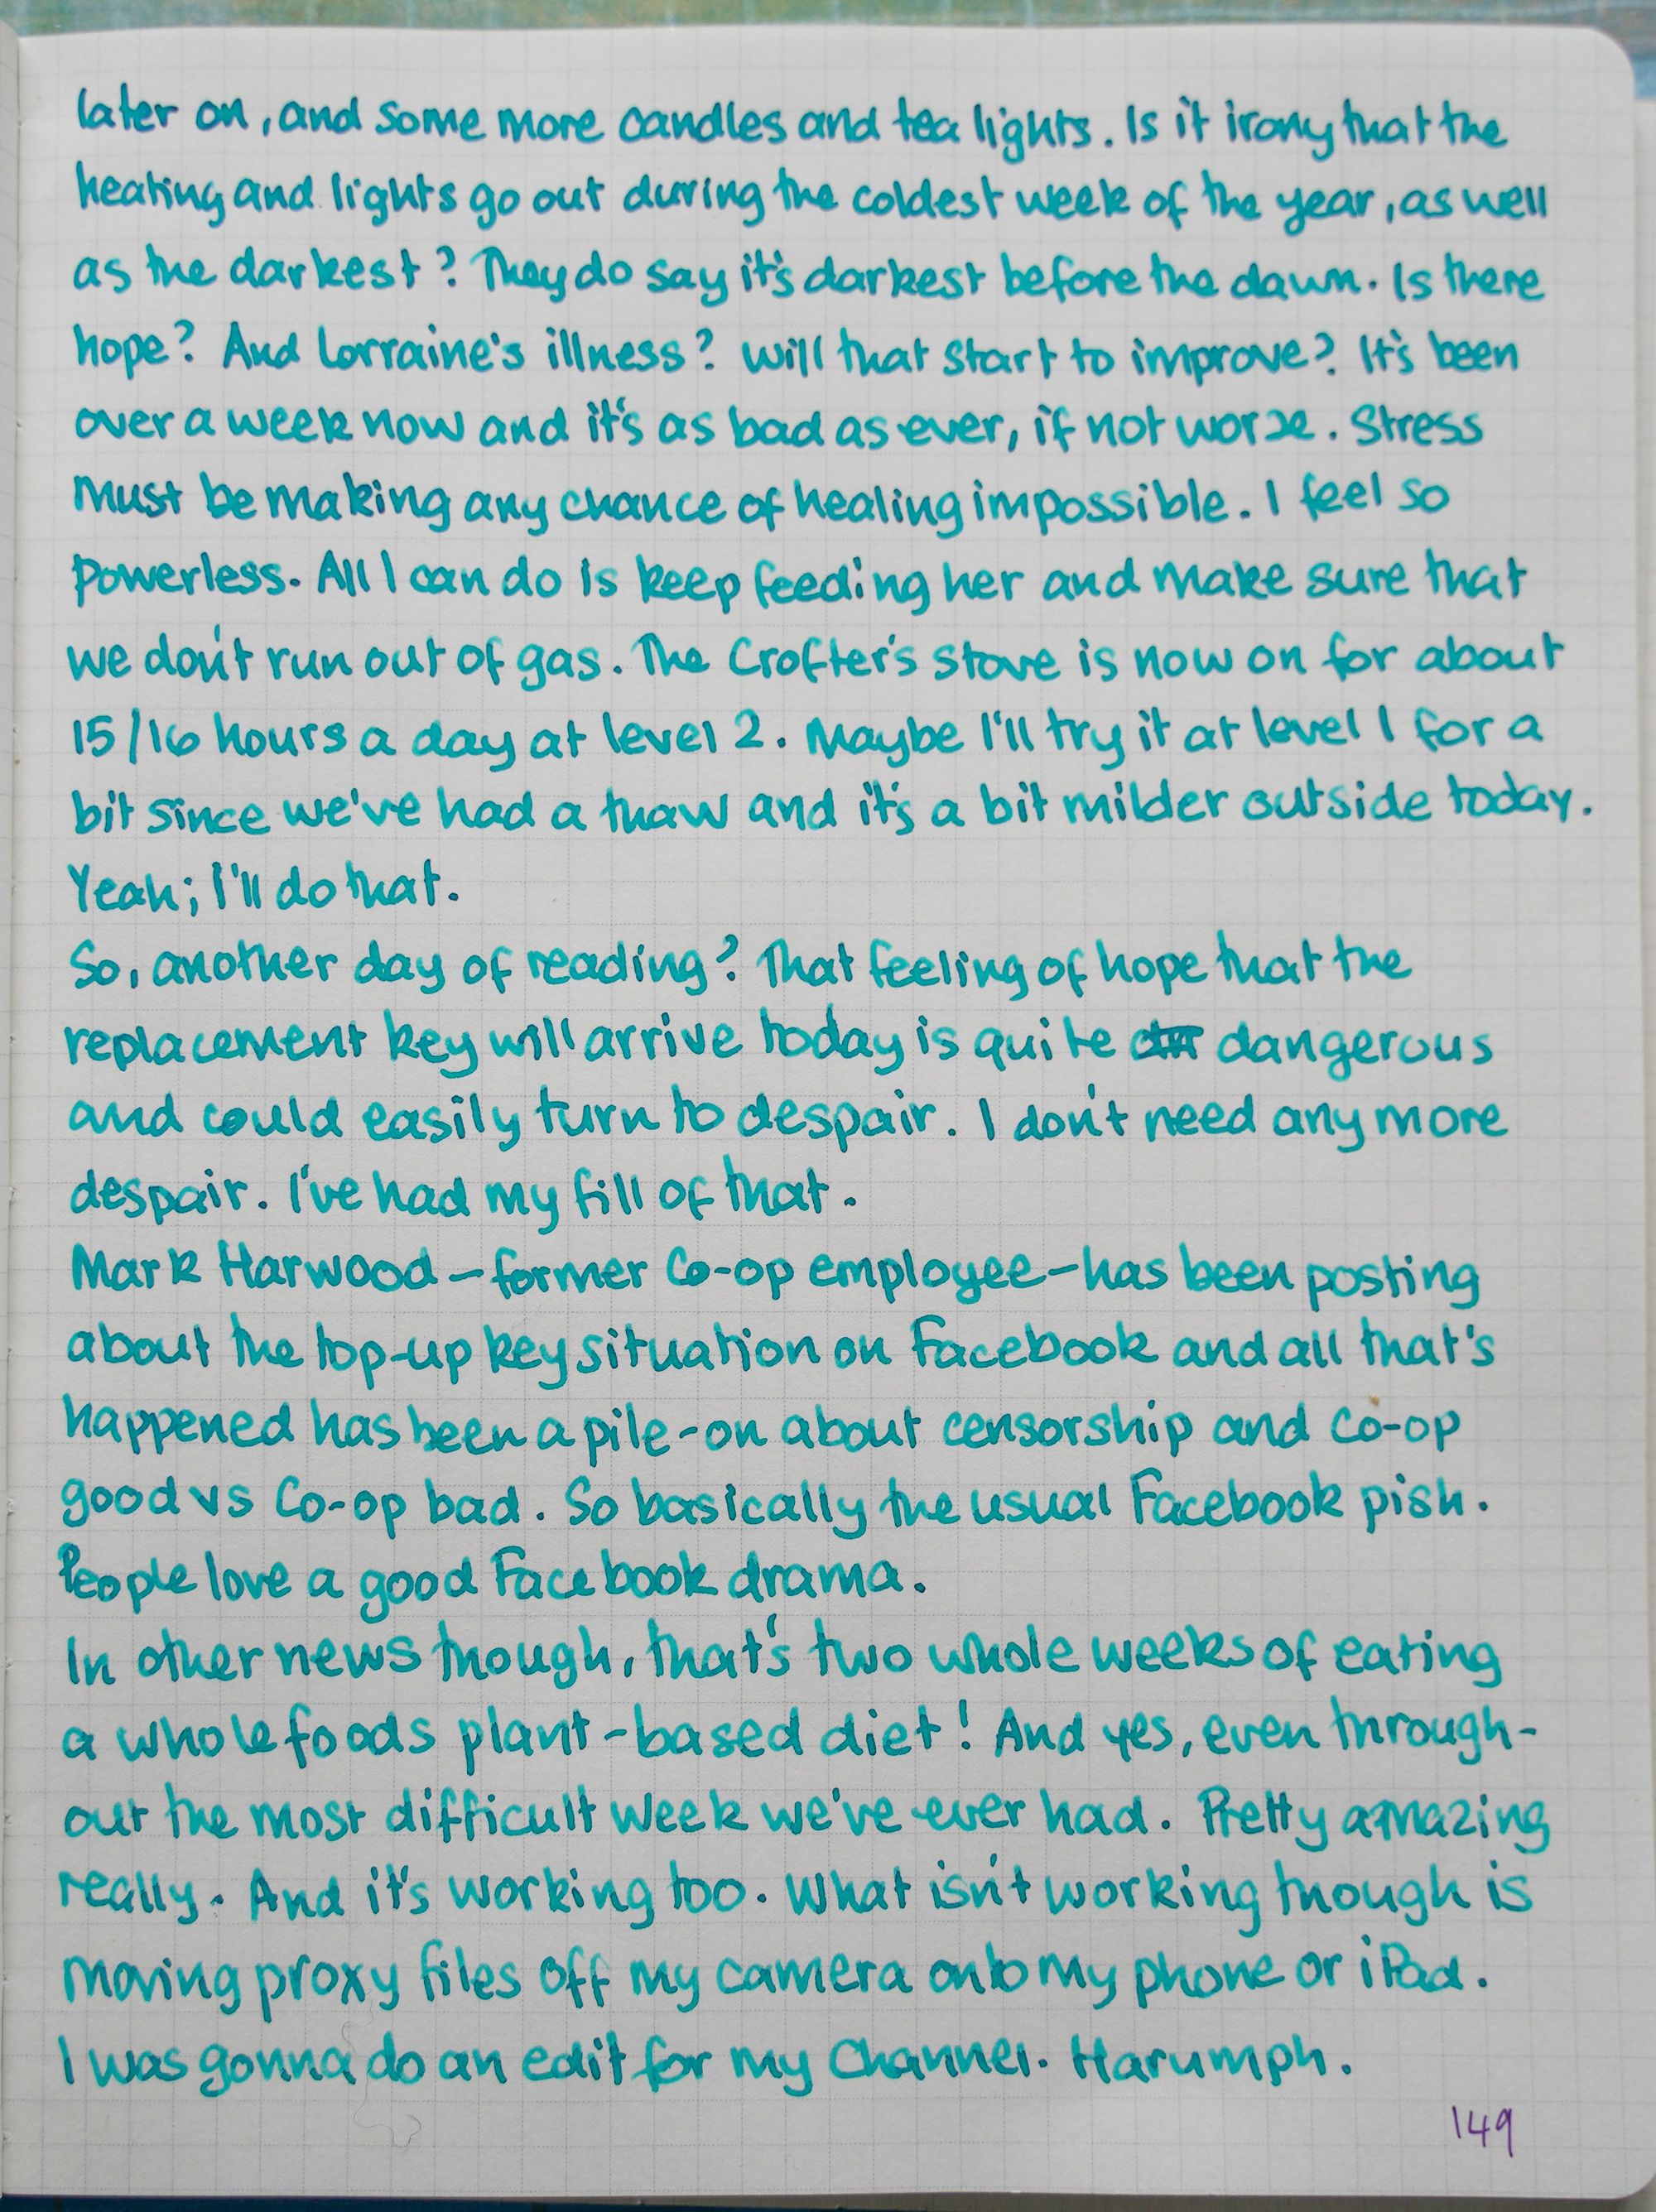 later on, and some more candles and tea lights. Is it irony that the
heating and lights go out during the coldest week of the year, as well
as the darkest? They do say it's darkest before the dawn. Is there
hope? And Lorraine's illness? Will that start to improve? It's been
over a week now and it's as bad as ever, if not worse. Stress
must be making any chance of healing impossible. I feel so
powerless. All I can do is keep feeding her and make sure that
we don't run out of gas. The Crofter's stove is now on for about
15/16 hours a day at level 2. Maybe I'll try it at level 1 for a
bit since we've had a thaw and it's a bit milder outside today.
Yeah; I'll do that.
So, another day of reading? That feeling of hope that the
replacement key will arrive today is quite dangerous
and could easily turn to despair. I don't need any more
despair. I've had my fill of that.
Mark Harwood - former Co-op employee - has been posting
about the top-up key situation on Facebook and all that's
happened has been a pile-on about censorship and Co-op
good vs Co-op bad. So basically the usual Facebook pish.
People love a good Facebook drama.
In other news though, that's two whole weeks of eating
a wholefoods plant-based diet! And yes, even through-
out the most difficult week we've ever had. Pretty amazing
really. And it's working too. What isn't working though is
moving proxy files off my camera onto my phone or iPad.
I was gonna do an edit for my Channel. Harumph.
149